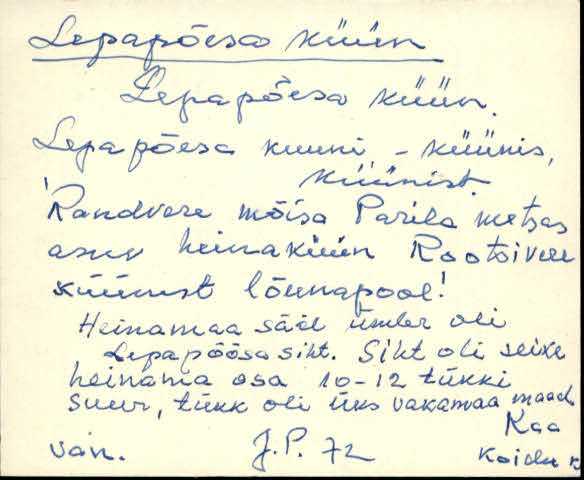 Lepapõesa küün
Lepapõesa küün.
Lepapõesa kuuni - küünis,
küünist.
'Randvere mõisa Parila metsas
asuv heinaküün Rootsivere
küünist lõunapool!
Heinamaa sääl ümber oli
Lepapõõsa siht. Siht oli seike
heinama osa 10-12 tükki
suur, tükk oli üks vakamaa maad.
Kaa
van. J. P. 72 Koidu k